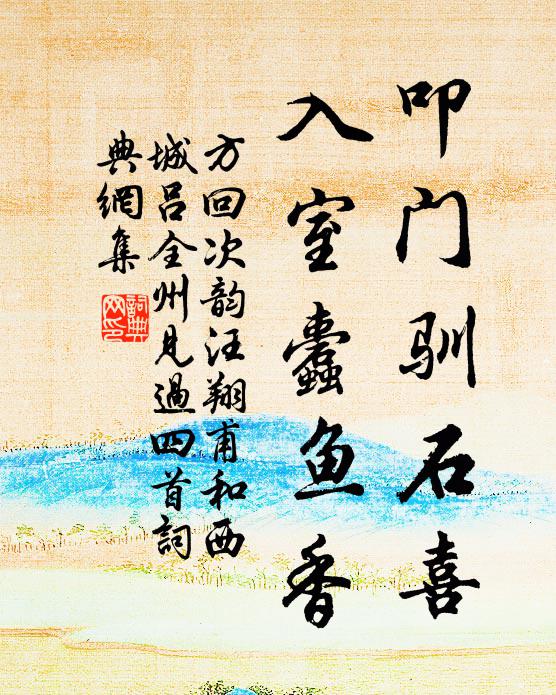 叩门驯石喜
入室蠹鱼香
方回次韵汪翔甫和西
城吕全州见过四首詞
典網集
詞典网印